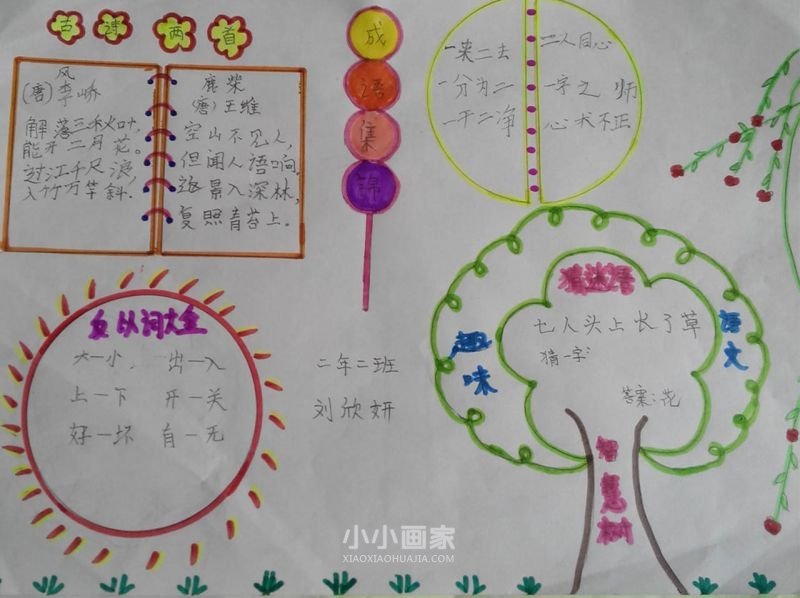 古诗两首
风
(唐)李峤
解落三秋叶,
能开二月花。
过江千尺浪,
入竹万竿斜.
鹿柴
(唐)王维
空山不见人,
但闻人语响.
返景入深林,
复照青苔上。
成语集锦
一来二去
一分为二
一干二净
二人同心
一字之师
心术不正
反以词大全
大一小,
出一入
上一下
开一关
好一坏
有一无
二年二班
刘欣妍
趣味
语文
猜迷语
七人头上长了草
猜一字
答案:花
智慧树
小小画家
XIAOXIAOHUAJIA.COM